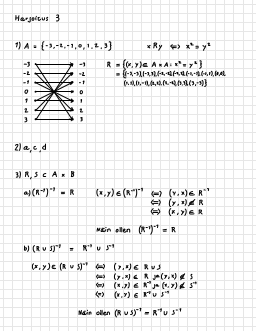 Harjoitus 3
1) A = {-3,-2,-1,0,1,2,3}   xRy ⇔ x² = y²
-3 -3 R = {(x,y) ∈ A × A : x² = y²}
-2 -2 = {(-3,-3),(-3,3),(-2,-2),(-2,2),(-1,-1),(-1,1),(0,0),
-1 -1 (1,1),(1,-1),(2,2),(2,-2),(3,3),(3,-3)}
0 0
1 1
2 2
3 3
2) a, c, d
3) R, S ⊂ A × B
a) (R⁻¹)⁻¹ = R   (x,y) ∈ (R⁻¹)⁻¹ ⇔ (y,x) ∈ R⁻¹
⇔ (y,x) ∉ R
⇔ (x,y) ∈ R
Näin ollen (R⁻¹)⁻¹ = R
b) (R ∪ S)⁻¹ = R⁻¹ ∪ S⁻¹
(x,y) ∈ (R ∪ S)⁻¹ ⇔ (y,x) ∈ R ∪ S
⇔ (y,x) ∈ R ja (y,x) ∉ S
⇔ (x,y) ∈ R⁻¹ ja (x,y) ∉ S⁻¹
⇔ (x,y) ∈ R⁻¹ ∪ S⁻¹
Näin ollen (R ∪ S)⁻¹ = R⁻¹ ∪ S⁻¹